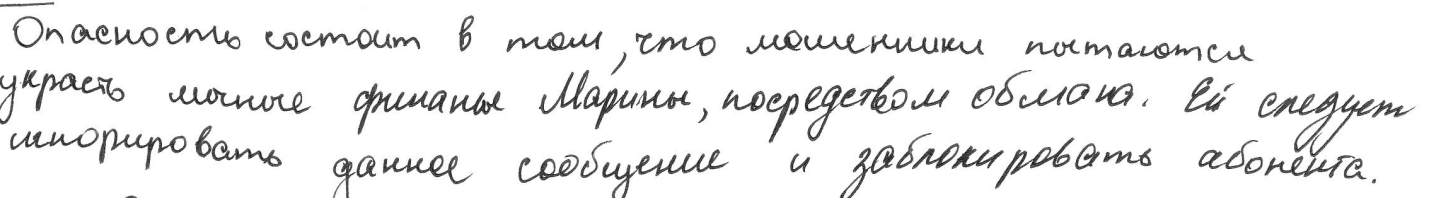 Опасность состоит в том, что мошенники пытаются
украсть личные финансы Марины, посредством обмана. Ей следует
игнорировать данное сообщение и заблокировать абонента.